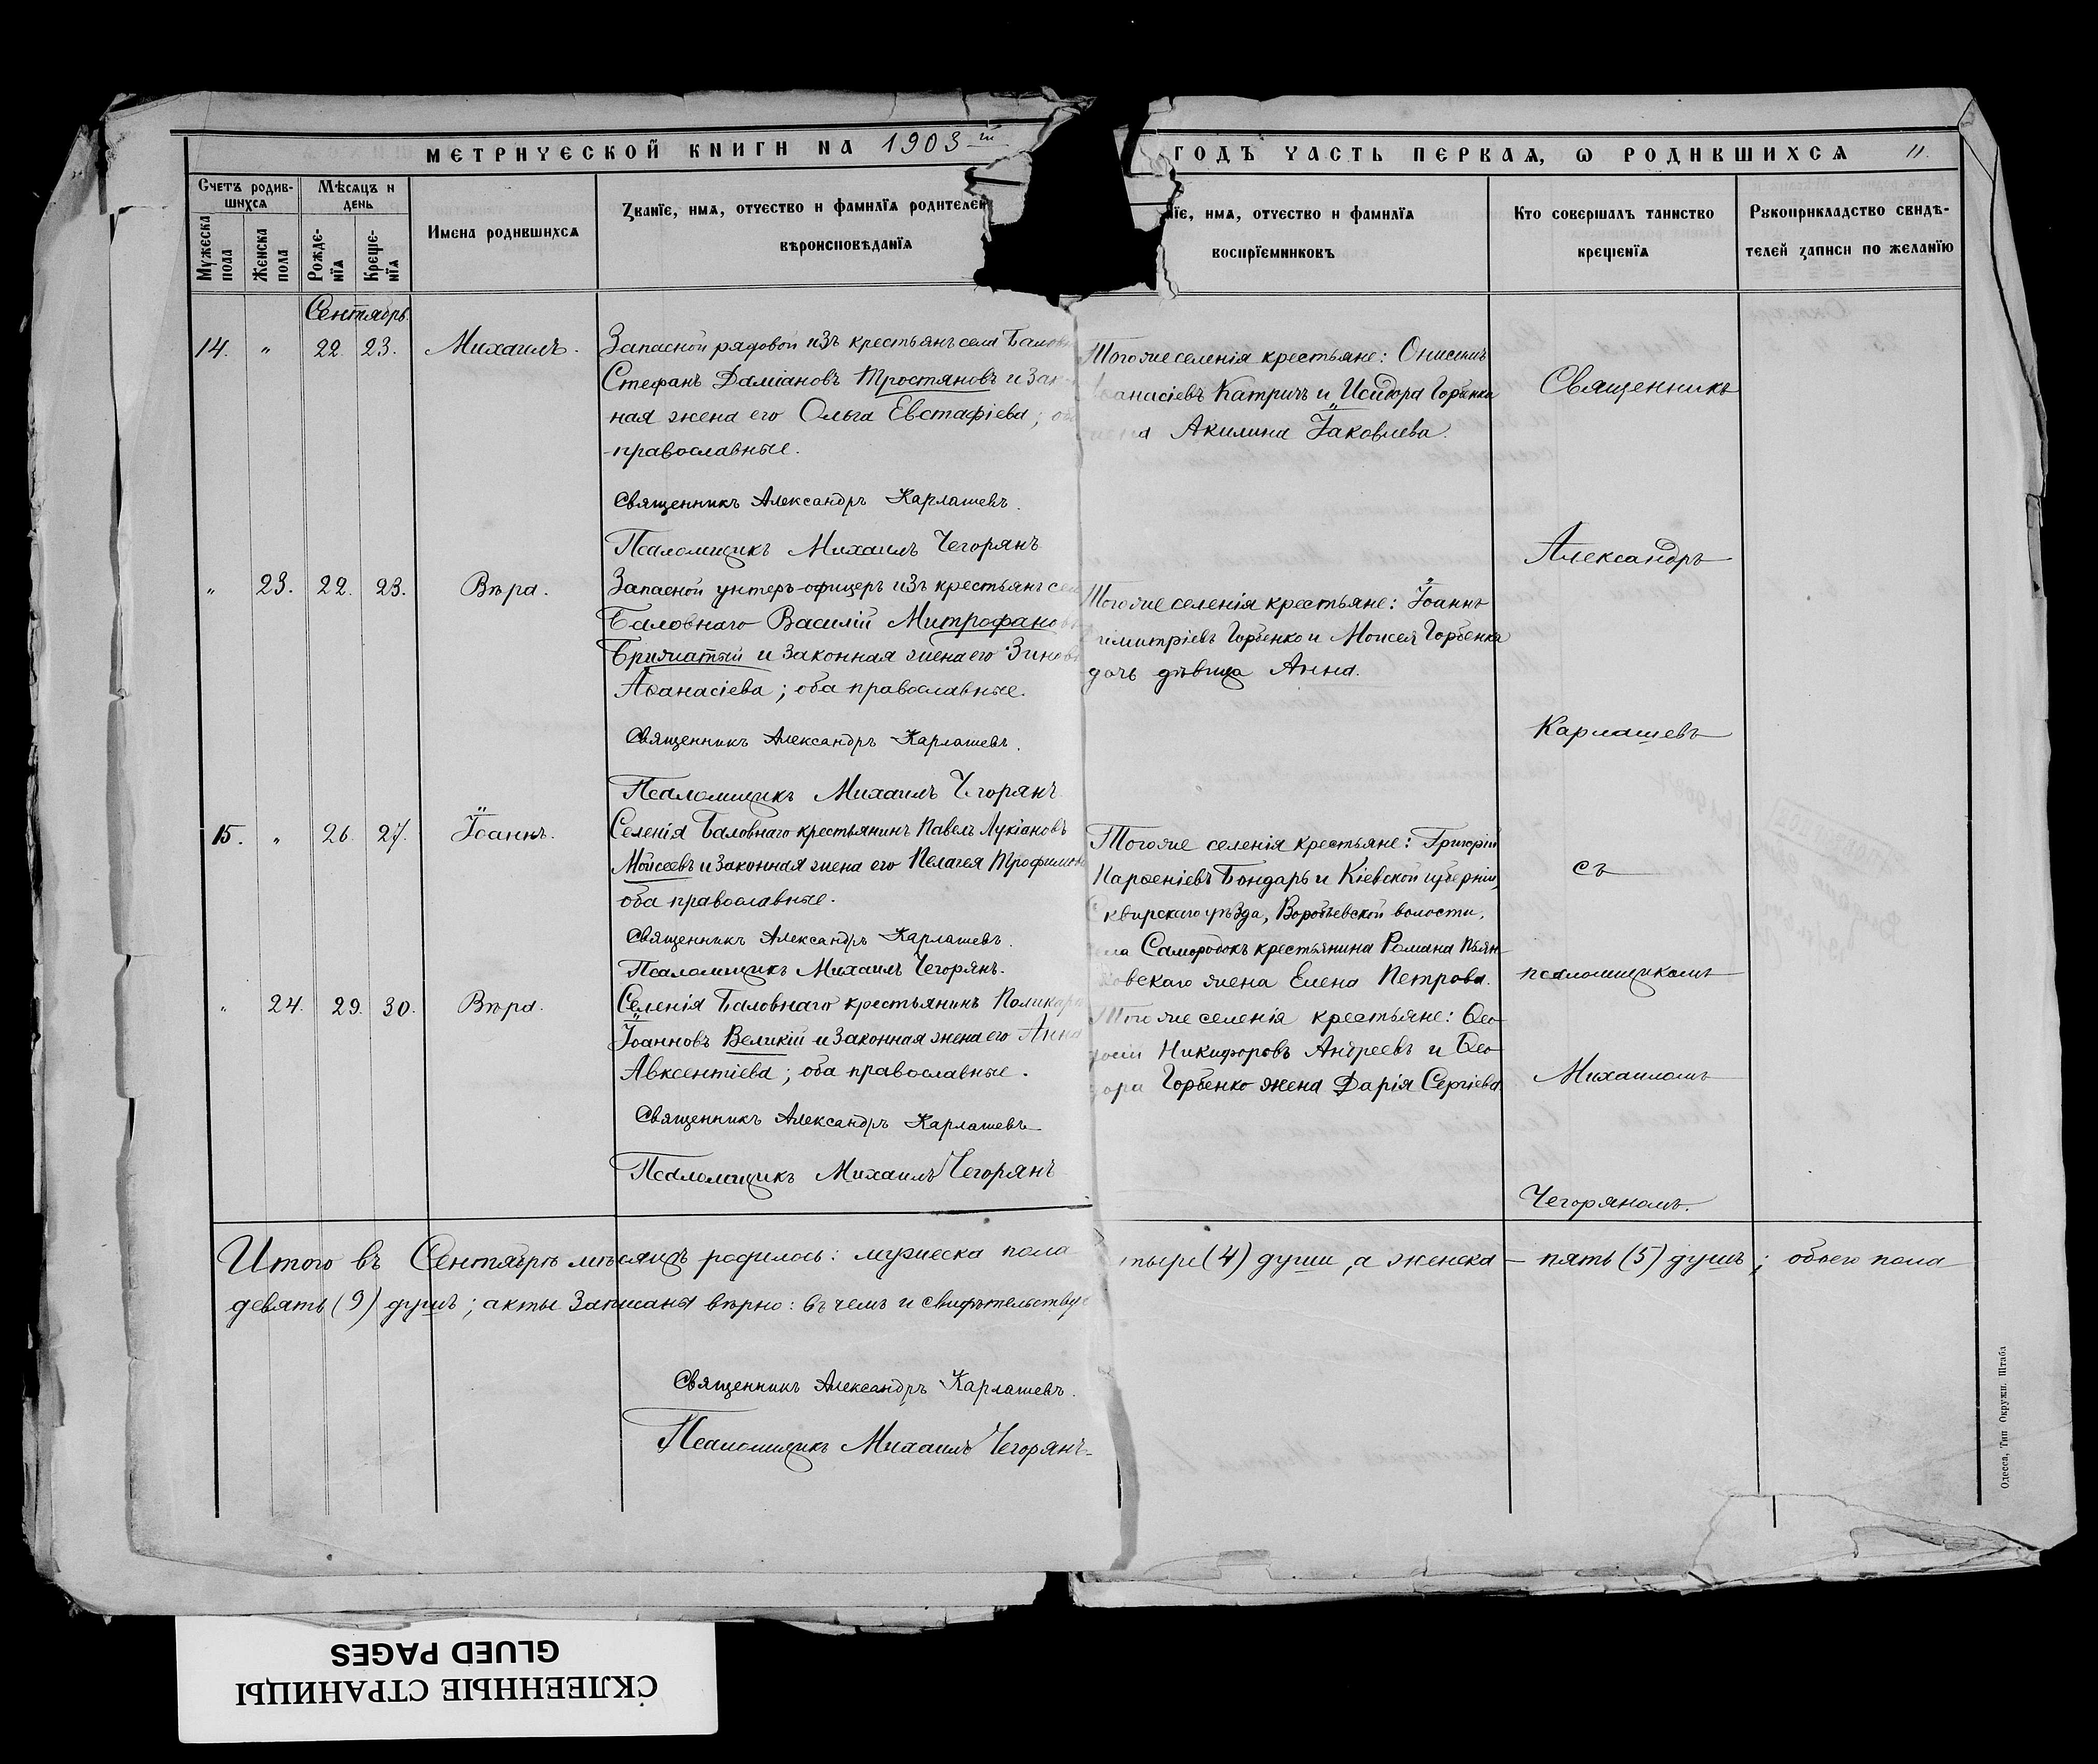 МЕТРИЧЕСКОЙ КНИГИ НА 1903 й
ГОДЪ ЧАСТЬ ПЕРВАЯ, Ѡ РОДИВШИХСЯ 11.
Счетъ родив-
шихся
Мужеска пола
Женска пола
Мѣсяцъ и
день
Рожде-
нія
Креще-
нія
Имена родившихся
Званїе, имя, отчество и фамилїя родителей
вѣроисповѣданїя
їе, имя, отчество и фамилїя
воспрїемниковъ
Кто совершалъ таинство
крещенїя
Рукоприкладство свидѣ-
телей записи по желанїю
Сентябрь.
14. " 22. 23. Михаилъ.
Запасной рядовой изъ крестьянъ села
Стефанъ Даміановъ Тростяновъ и зак-
ная жена его Ольга Евстафіева;
православные.
Священникъ Александръ Карлашевъ.
Псаломщикъ Михаилъ Чегорянъ
Тогоже селенія крестьяне:
анасіевъ Катричъ и Исидора Горбенка
Акилина Іаковлева.
" 23. 22. 23. Вѣра.
Запасной унтеръ-офицеръ изъ крестьянъ
Баловнаго Василій Митрофановъ
Брижатый и законная жена его
Аѳанасіева; оба православные.
Священникъ Александръ Карлашевъ.
Псаломщикъ Михаилъ Чегорянъ
Тогоже селенія крестьяне: Іоаннъ
имитріевъ Горбенко и Моисея Горбенка
дочь дѣвица Анна.
15. " 26. 27. Іоаннъ.
Селенія Баловнаго крестьянинъ Павелъ Лукіановъ
Мойсеевъ и законная жена его Пелагея Трофимова
оба православные.
Священникъ Александръ Карлашевъ.
Псаломщикъ Михаилъ Чегорянъ.
Тогоже селенія крестьяне: Григорій
Парѳеніевъ Бондарь и Кіевской губерніи,
Сквирскаго уѣзда, Воробьевской волости,
села Самородокъ крестьянина Романа Пьян-
ковскаго жена Елена Петрова.
" 24. 29. 30. Вѣра.
Селенія Баловнаго крестьянинъ
Іоанновъ Великій и законная жена его Анна
Авксентіева; оба православные.
Священникъ Александръ Карлашевъ
Псаломщикъ Михаилъ Чегорянъ
Тогоже селенія крестьяне: Ѳео-
досій Никифоровъ Андреевъ и Ѳео-
дора Горбенко жена Дарія Сергіева
Священникъ
Александръ
Карлашевъ
съ
псаломщикомъ
Михаиломъ
Чегоряномъ.
Итого въ Сентябрѣ мѣсяцѣ родилось: мужеска пола тыре (4) души, а женска – пять (5) душъ; обоего пола
девять (9) душъ; акты записаны вѣрно: въ чемъ и свидѣтельствуе
Священникъ Александръ Карлашевъ.
Псаломщикъ Михаилъ Чегорянъ
Одесса, Тип Окружн. Штаба
СКЛЕЕННЫЕ СТРАНИЦЫ
GLUED PAGES